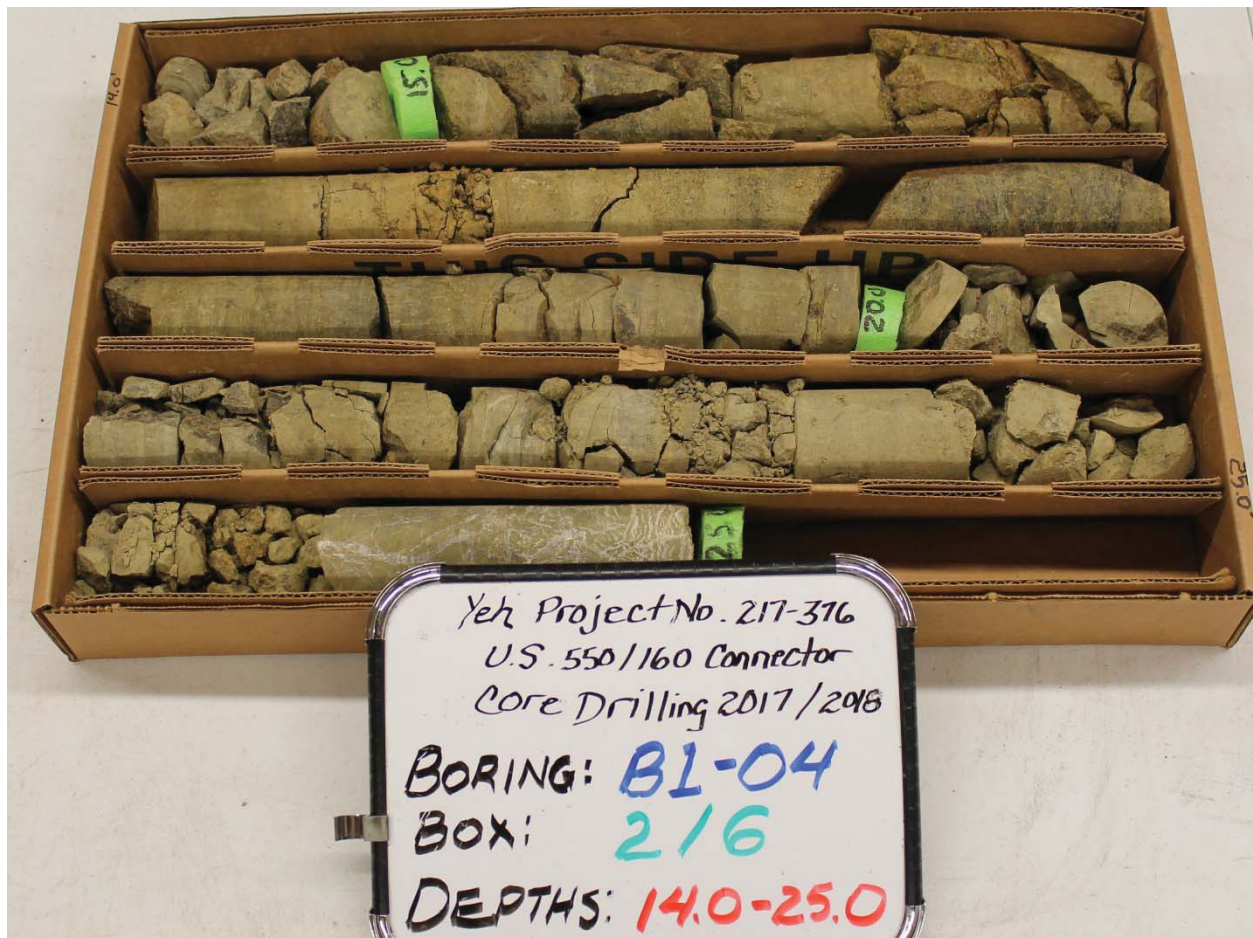 14.0'
15.0
THIS SIDE UP
20.0
25.0
25
Yeh Project No. 217-376
U.S. 550/160 Connector
Core Drilling 2017/2018
BORING: B1-04
BOX: 2/6
DEPTHS: 14.0-25.0